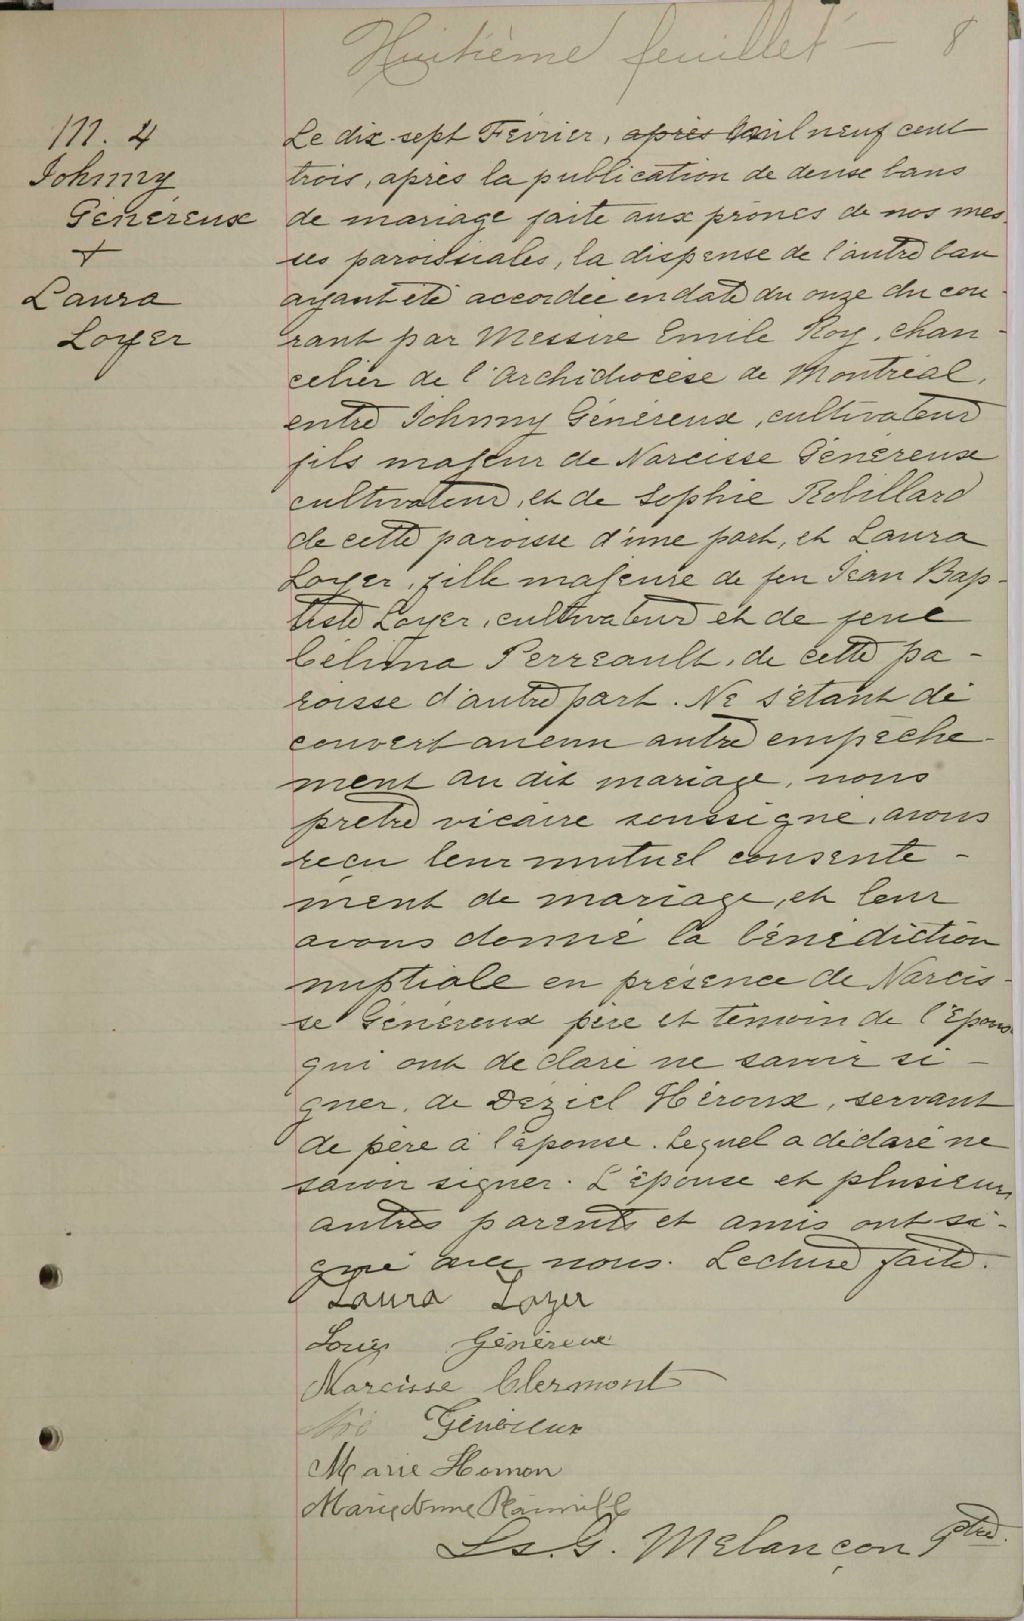 Huitième feuillet — 8
M. 4
Johnny
Généreux
+
Laura
Loyer
Le dix-sept Février, après mil neuf cent
trois, après la publication de deux bans
de mariage faite aux prônes de nos mes-
ses paroissiales, la dispense de l'autre ban
ayant été accordée en date du onze du cou-
rant par Messire Emile Roy, chan-
celier de l'Archidiocèse de Montréal,
entre Johnny Généreux, cultivateur
fils majeur de Narcisse Généreux
cultivateur, et de Sophie Robillard
de cette paroisse d'une part, et Laura
Loyer, fille majeure de feu Jean Bap-
tiste Loyer, cultivateur et de feue
Célina Perreault, de cette pa-
roisse d'autre part. Ne s'étant dé
couvert aucun autre empêche-
ment au dit mariage, nous
prêtre vicaire soussigné, avons
reçu leur mutuel consente-
ment de mariage, et leur
avons donné la bénédiction
nuptiale en présence de Narcis-
se Généreux père et temoin de l'Epoux
qui ont declaré ne savoir si-
gner, de Déziel Héroux, servant
de père à l'épouse. Lequel a déclaré ne
savoir signer. L'épouse et plusieurs
autres parents et amis ont si-
gné avec nous. Lecture faite.
Laura Loyer
Louis Généreux
Narcisse Clermont
Noé Généreux
Marie Homon
Marie Anne
Ls. G. Melançon ptre.